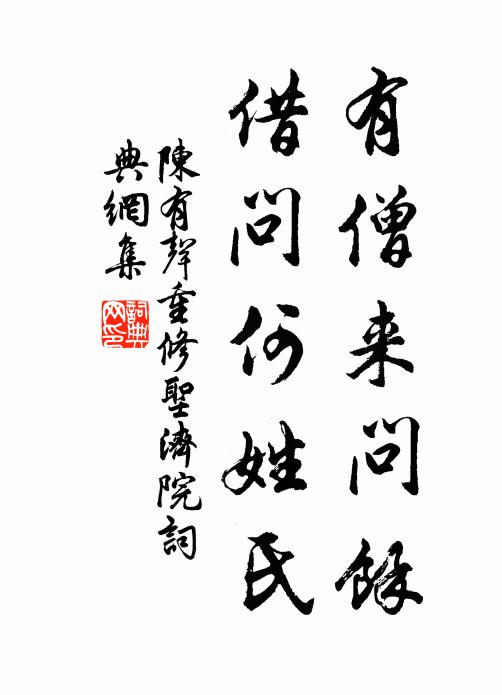 有僧来問餘
借問何姓氏
陳有聲重修聖濟院詞
典網集
詞典
网印